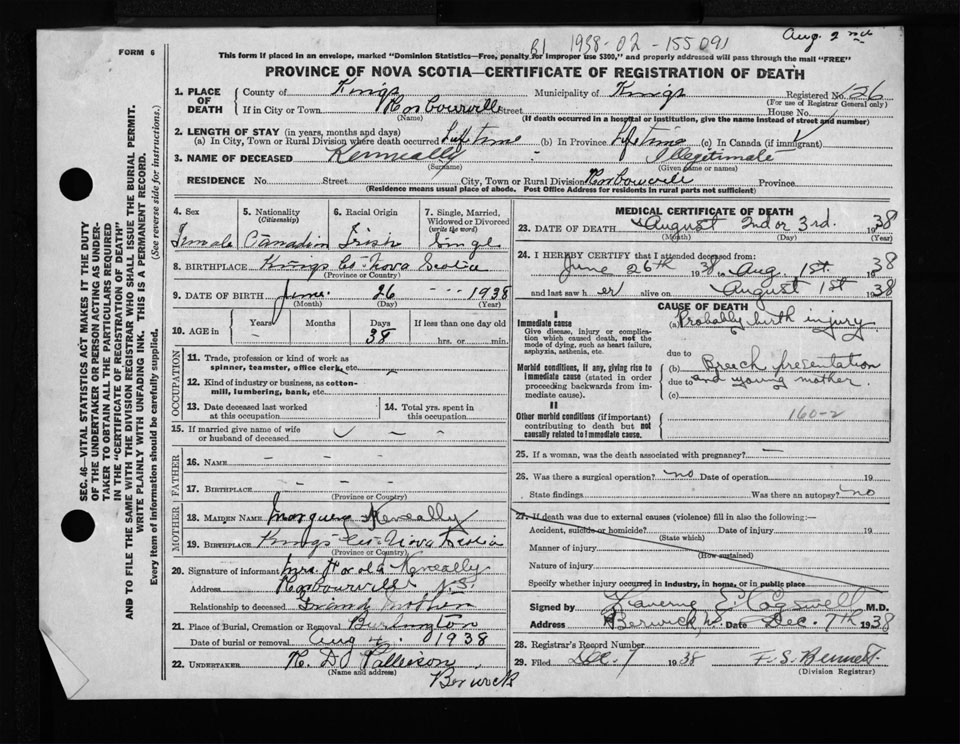 Aug. 2nd
B1 1938-02-155091
FORM 6
This form if placed in an envelope, marked "Dominion Statistics—Free, penalty for improper use $300," and properly addressed will pass through the mail "FREE"
PROVINCE OF NOVA SCOTIA—CERTIFICATE OF REGISTRATION OF DEATH
1. PLACE OF DEATH
County of Kings Municipality of Kings Registered No. 126
(For use of Registrar General only)
If in City or Town Harbourvill Street House No.
(Name) (If death occurred in a hospital or institution, give the name instead of street and number)
2. LENGTH OF STAY (in years, months and days)
(a) In City, Town or Rural Division where death occurred Life time (b) In Province Life time (c) In Canada (if immigrant)
3. NAME OF DECEASED Kenneally Illegitimate
(Surname) (Given name or names)
RESIDENCE No. Street City, Town or Rural Division Harbourville Province
(Residence means usual place of abode. Post Office Address for residents in rural parts not sufficient)
4. Sex
Female
5. Nationality (Citizenship)
Canadian
6. Racial Origin
Irish
7. Single, Married, Widowed or Divorced (write the word)
Single
8. BIRTHPLACE Kings Co Nova Scotia
(Province or Country)
9. DATE OF BIRTH June 26 1938
(Month) (Day) (Year)
10. AGE in Years Months Days If less than one day old
- - 38 hrs. or min.
OCCUPATION
11. Trade, profession or kind of work as spinner, teamster, office clerk, etc.
12. Kind of industry or business, as cotton-mill, lumbering, bank, etc.
13. Date deceased last worked at this occupation
14. Total yrs. spent in this occupation
15. If married give name of wife or husband of deceased
FATHER
16. NAME - - - -
17. BIRTHPLACE - - -
(Province or Country)
MOTHER
18. MAIDEN NAME Keneally
19. BIRTHPLACE Kings Co- Nova Scotia
(Province or Country)
20. Signature of informant Mrs. Harold Keneally
Address Harbourvill N.S.
Relationship to deceased Grand mother
21. Place of Burial, Cremation or Removal Burlington
Date of burial or removal Aug 4. 1938
22. UNDERTAKER H. D. Patterson
(Name and address)
Berwick
MEDICAL CERTIFICATE OF DEATH
23. DATE OF DEATH August 2nd or 3rd. 1938
(Month) (Day) (Year)
24. I HEREBY CERTIFY that I attended deceased from
June 26th 1938 to Aug 1st. 1938
and last saw her alive on August 1st 1938
CAUSE OF DEATH
I
Immediate cause
Give disease, injury or complication which caused death, not the mode of dying, such as heart failure, asphyxia, asthenia, etc.
(a) Probably birth injury
due to
Morbid conditions, if any, giving rise to immediate cause (stated in order proceeding backwards from immediate cause).
(b) Breech presentation
due to and young mother.
(c)
II
Other morbid conditions (if important) contributing to death but not causally related to immediate cause.
160-2
25. If a woman, was the death associated with pregnancy? —
26. Was there a surgical operation? no Date of operation 19
State findings Was there an autopsy? no
27. If death was due to external causes (violence) fill in also the following:—
Accident, suicide or homicide? Date of injury 19
(State which)
Manner of injury
(How sustained)
Nature of injury
Specify whether injury occurred in Industry, in home, or in public place
Signed by Laverne E. Cogswell M.D.
Address Berwick N.S. Date Dec. 7th 1938
28. Registrar's Record Number
29. Filed Dec. 7 1938 F. S. Bennett.
(Division Registrar)
SEC. 46—VITAL STATISTICS ACT MAKES IT THE DUTY
OF THE UNDERTAKER OR PERSON ACTING AS UNDER-
TAKER TO OBTAIN ALL THE PARTICULARS REQUIRED
IN THE "CERTIFICATE OF REGISTRATION OF DEATH"
AND TO FILE THE SAME WITH THE DIVISION REGISTRAR WHO SHALL ISSUE THE BURIAL PERMIT.
WRITE PLAINLY WITH UNFADING INK. THIS IS A PERMANENT RECORD.
Every item of information should be carefully supplied. (See reverse side for instructions.)